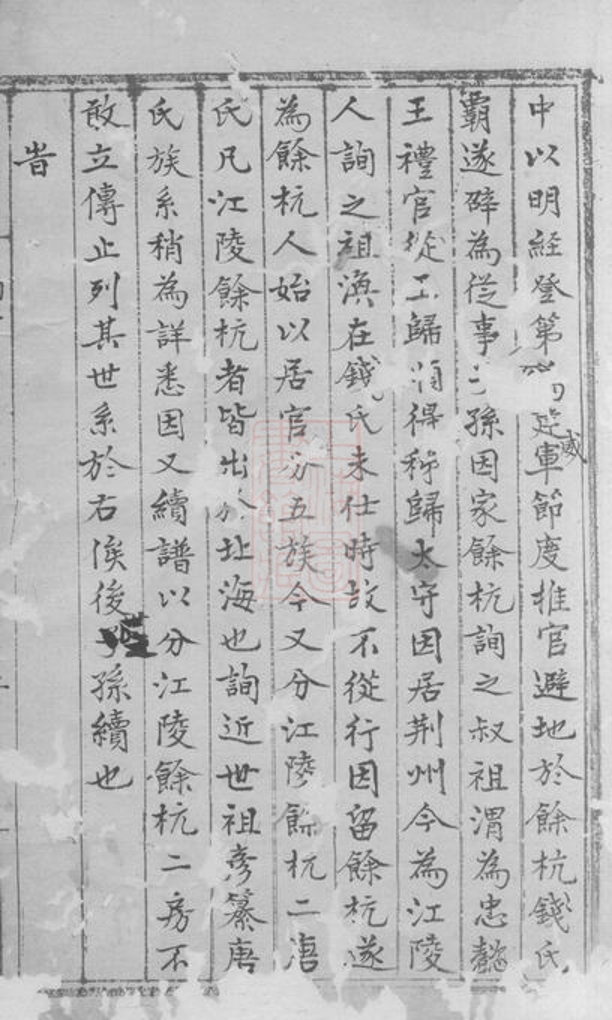 中以明經登第 建威軍節度推官避地於餘杭錢氏
霸遂辟為從事 孫因家餘杭詢之叔祖渭為忠懿
王禮官從王歸 得稱歸太守因居荆州今為江陵
人詢之祖漁在錢氏未仕時故不從行因留餘杭遂
為餘杭人始以居官分五族今又分江陵餘杭二唐
氏凡江陵餘杭者皆出於北海也詢近世祖彥纂唐
氏族系稍為詳悉因又續譜以分江陵餘杭二房不
敢立傳止列其世系於右俟後 孫續也
旹